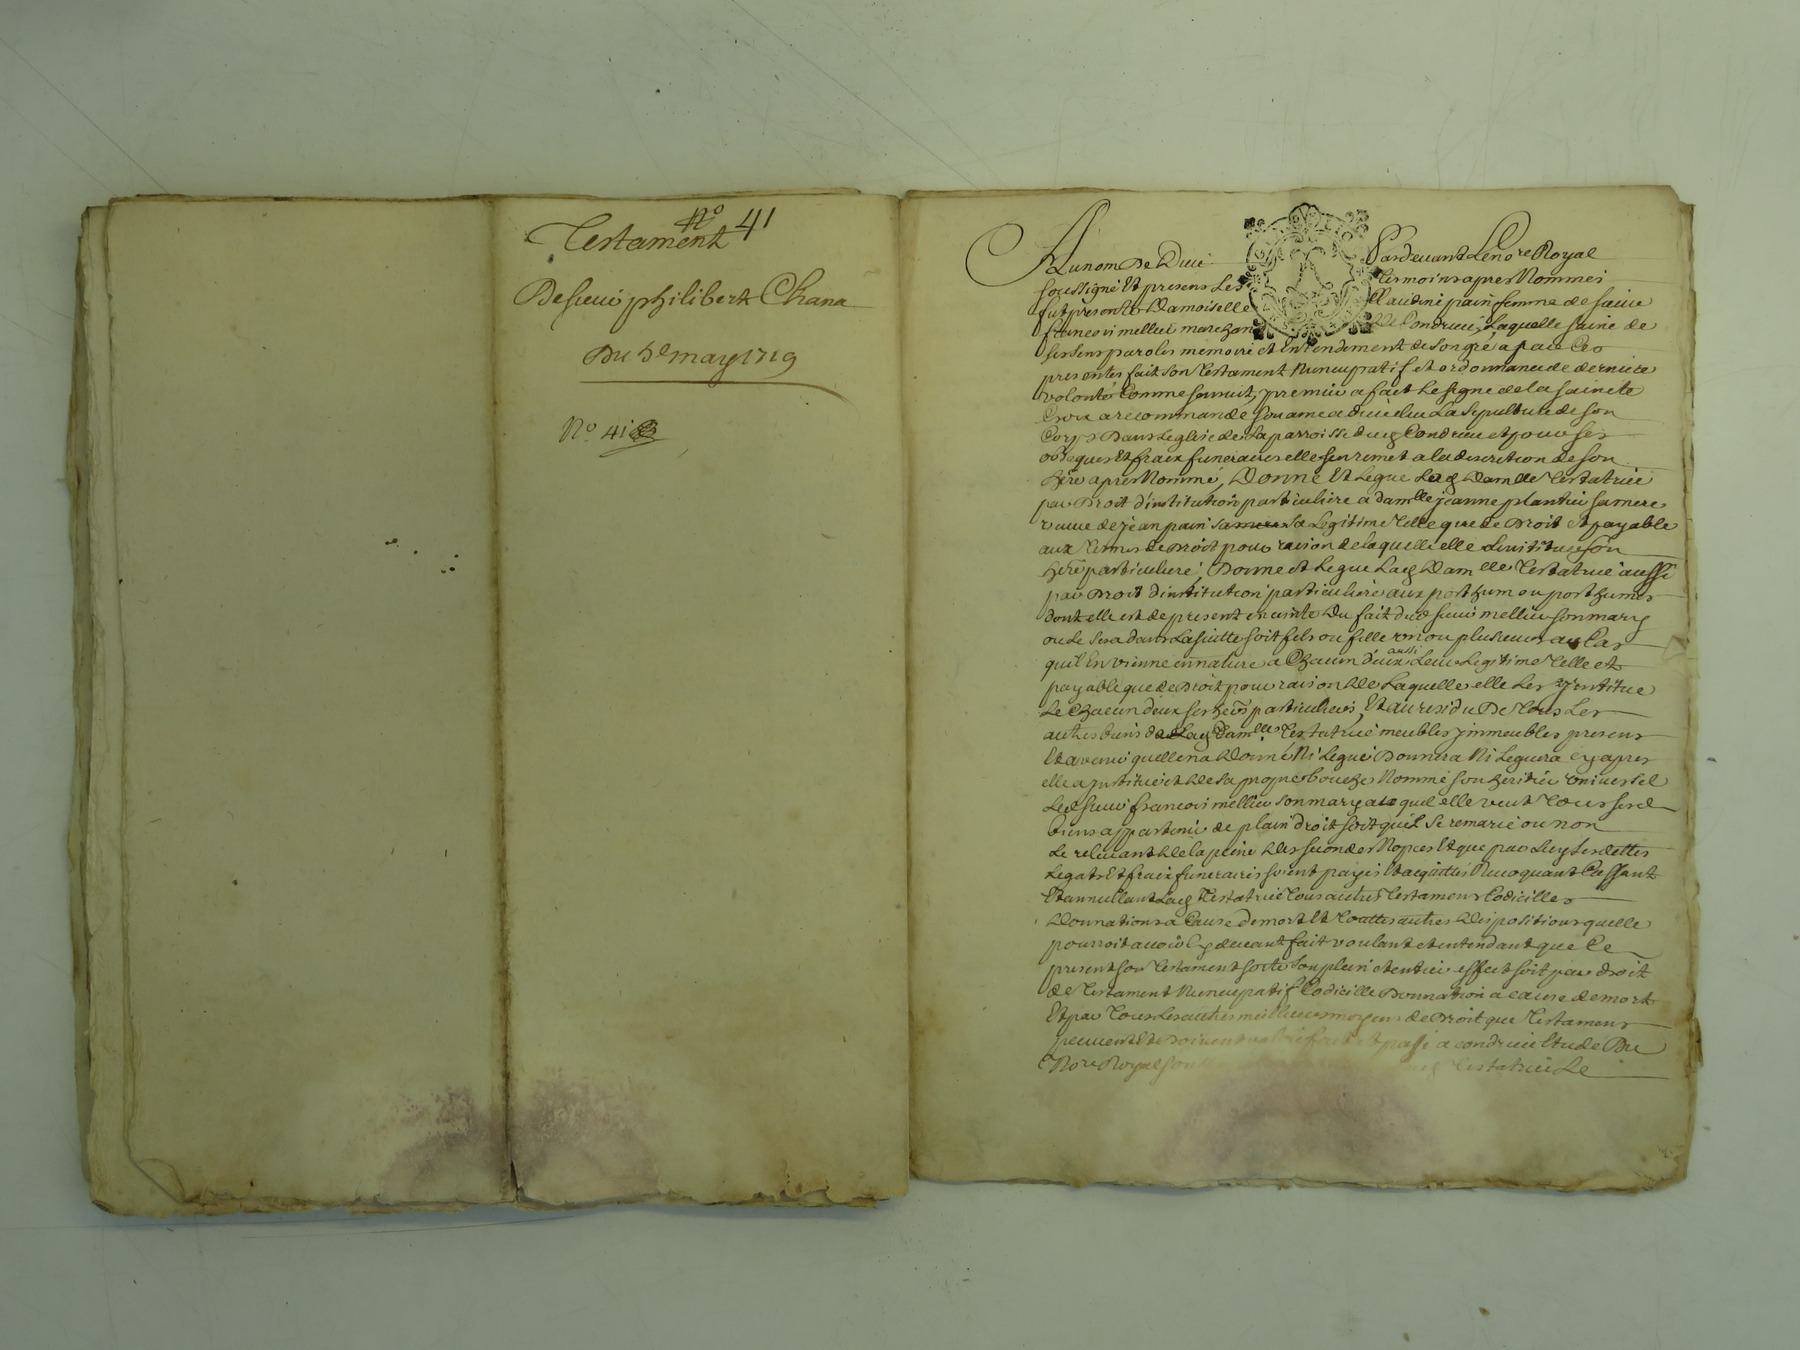 N.o 41
Testament
De sieur philibert Chana
Du 5e may 1719
N.o 41
Au nom De Dieu Pardevant Le no.re Royal
soussigné Et presens Les tesmoins apres Nommés
fut presente Damoiselle Claudine pain femme de sieur
francois mellier marchand de Condrieu, Laquelle saine de
ses sens paroles memoire et Entendement de son gré a par Ces
presentes fait son Testament Nuncupatif et ordonnance de derniere
volonté Comme sensuit, premier a fait Le signe de la saincte
Croix a recommandé son ame a dieu elu La sepulture de son
Corps Dans Leglise de La parroisse dud Condrieu et pour ses
obseques Et fraix funeraires elle sen remet a la discretion de son
here apres Nommé, Donne Et Legue Lad Damlle Testatrice
par Droit d'institution particuliere a damlle jeanne plantier sa mere
veuve de jean pain sa mere sa Legitime Telle que de Droit et payable
aux Termes de Droit pour raison de laquelle elle Linstitue son
here particuliere, Donne et Legue Lad Damlle Testatrice aussi
par Droit d'institution particuliere aux posthum ou posthumes
dont elle est de present enceinte Du fait dud sieur mellier son mary
ou Le sera dans La suitte soit fils ou fille un ou plusieurs au Cas
quil En vienne en nature a Chacun d'eux aussi Leur Legitime Telle et
payable que de Droit pour raison De Laquelle elle Les Institue
Le Chacun deux ses heres particuliers, Et au residu De Tous Les
autres biens de Lad Damlle Testatrice meubles immeubles presens
Et avenir quelle na Donné Ni Legué Donnera Ni Leguera cy apres
elle a Institué et De sa propre bouche Nommé son heritier universel
Led sieur francois mellier son mary auquel elle veut Tous sesd
biens appartenir de plain droit soit quil se remarie ou non
Le relevant De la peine Des secondes Nopces Et que par Luy ses dettes
Legats Et fraix funeraires soient payés Et acquittés Revoquant Cassant
Et annullant Lad Testatrice Tous autres Testamens Codicilles
Donnations a Cause De mort Et Touttes autres Dispositions quelle
pourroit avoir Cy devant fait voulant et entendant que Ce
present son Testament sorte son plein et entier effect soit par droit
de Testament Nuncupatif Codicille Donnation a cause de mort
Et par Tous Les autres meilleurs moyens de Droit que Testamens
peuvent Et Doivent valoir fait et passé a condrieu Etude Du
No.re Royal Testatrice Le